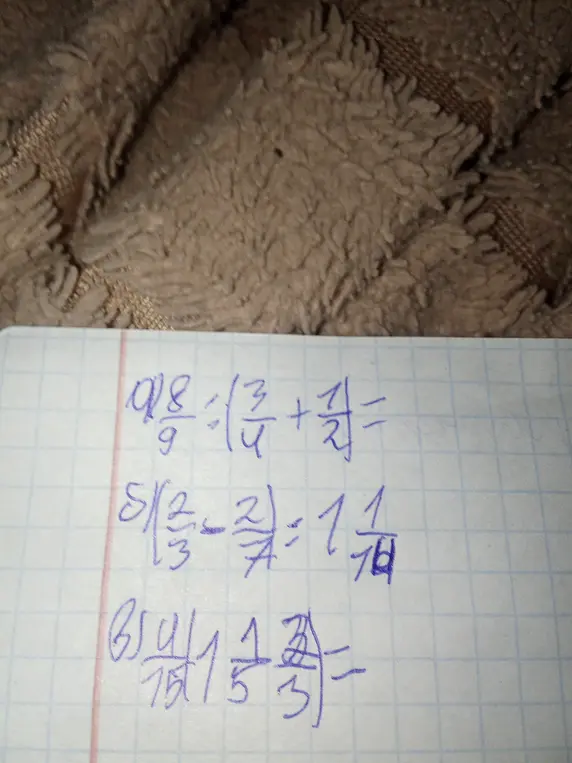 а) 8/9 : (3/4 + 1/2) =
б) (2/3 - 2/7) : 1 1/14
в) 4/15 (1 1/5 - 2/3) =